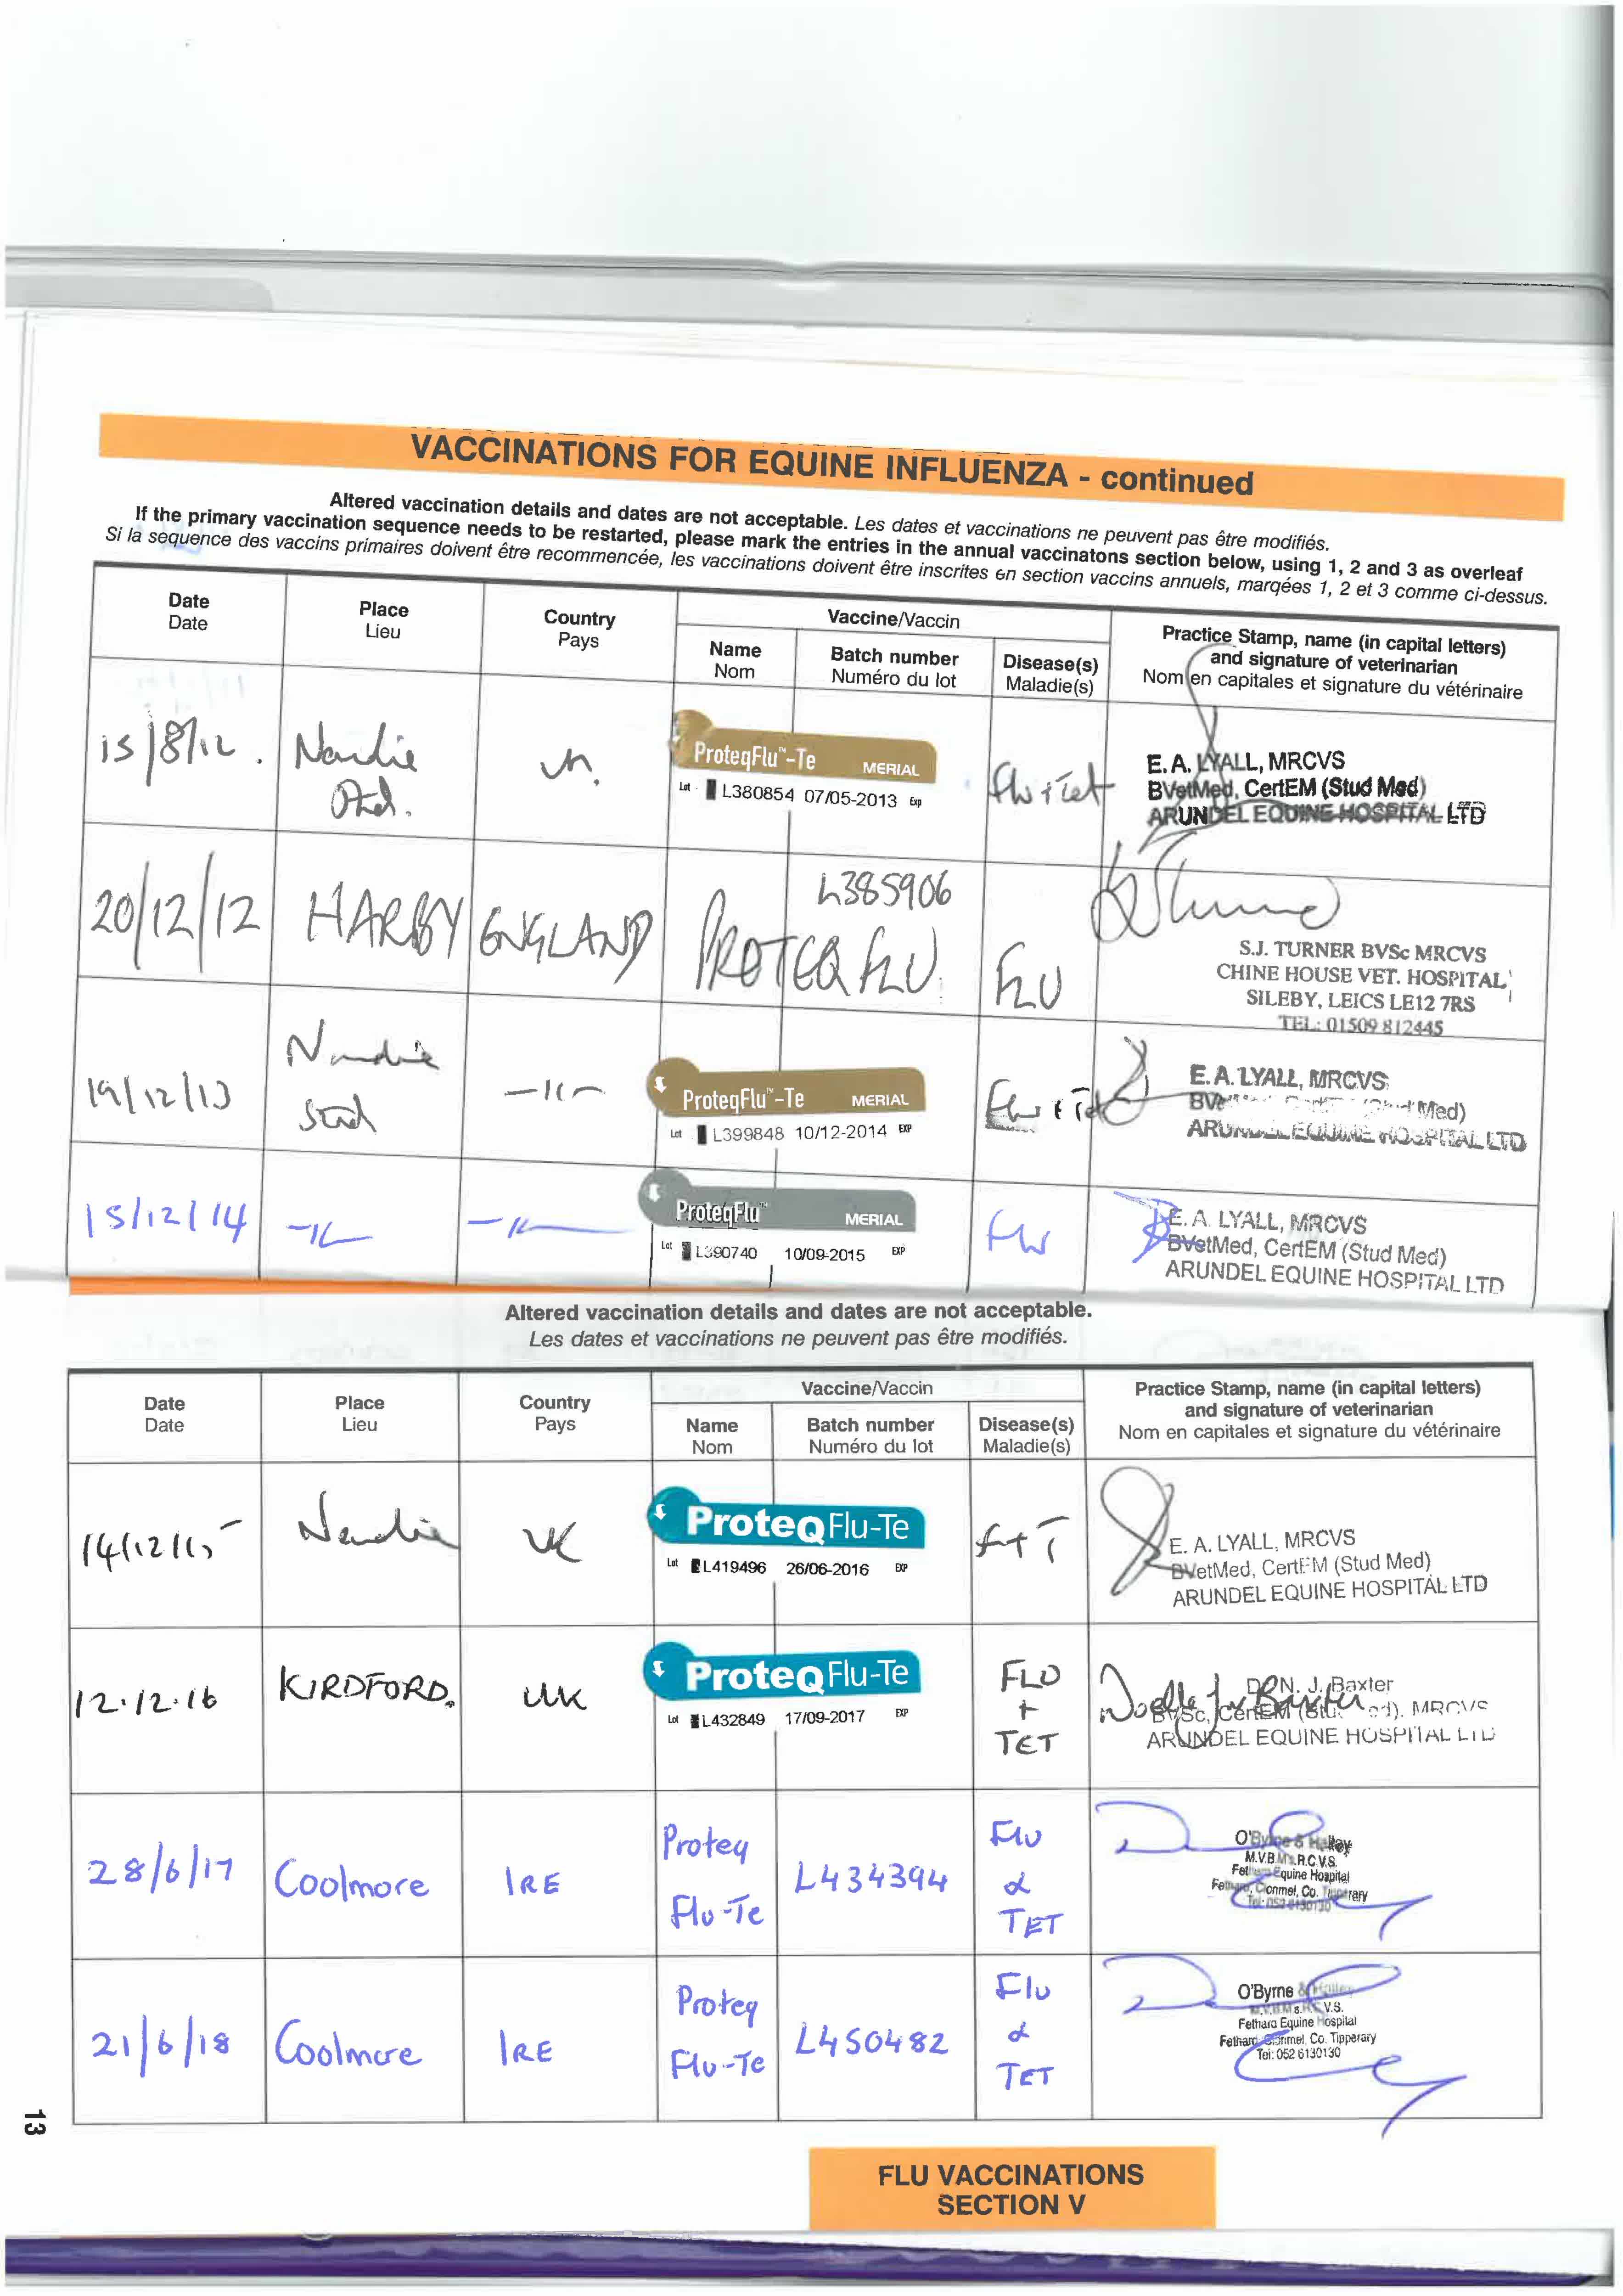 VACCINATIONS FOR EQUINE INFLUENZA - continued
Altered vaccination details and dates are not acceptable. Les dates et vaccinations ne peuvent pas être modifiés.
If the primary vaccination sequence needs to be restarted, please mark the entries in the annual vaccinatons section below, using 1, 2 and 3 as overleaf
Si la sequence des vaccins primaires doivent être recommencée, les vaccinations doivent être inscrites en section vaccins annuels, marqées 1, 2 et 3 comme ci-dessus.
Date
Date
Place
Lieu
Country
Pays
Vaccine/Vaccin
Name
Nom
Batch number
Numéro du lot
Disease(s)
Maladie(s)
Practice Stamp, name (in capital letters)
and signature of veterinarian
Nom en capitales et signature du vétérinaire
15/8/12.
ProteqFlu™-Te MERIAL
Lot L380854 07/05-2013 Exp
Flu + Tet
E. A. LYALL, MRCVS
BVetMed, CertEM (Stud Med)
ARUNDEL EQUINE HOSPITAL LTD
20/12/12
HARBY
ENGLAND
PROTEQ FLU
L385906
FLU
S.J. TURNER BVSc MRCVS
CHINE HOUSE VET. HOSPITAL
SILEBY, LEICS LE12 7RS
TEL: 01509 812445
19/12/13
Stud
ProteqFlu™-Te MERIAL
Lot L399848 10/12-2014 EXP
Flu + Tet
E. A. LYALL, MRCVS
Med)
ARUNDEL EQUINE HOSPITAL LTD
15/12/14
ProteqFlu™ MERIAL
Lot L390740 10/09-2015 EXP
Flu
E. A. LYALL, MRCVS
BVetMed, CertEM (Stud Med)
ARUNDEL EQUINE HOSPITAL LTD
Altered vaccination details and dates are not acceptable.
Les dates et vaccinations ne peuvent pas être modifiés.
Date
Date
Place
Lieu
Country
Pays
Vaccine/Vaccin
Name
Nom
Batch number
Numéro du lot
Disease(s)
Maladie(s)
Practice Stamp, name (in capital letters)
and signature of veterinarian
Nom en capitales et signature du vétérinaire
14/12/15
UK
ProteqFlu-Te
Lot L419496 26/06-2016 EXP
F+T
E. A. LYALL, MRCVS
BVetMed, CertEM (Stud Med)
ARUNDEL EQUINE HOSPITAL LTD
12.12.16
KIRDFORD.
UK
ProteqFlu-Te
Lot L432849 17/09-2017 EXP
FLU
+
TET
N. J. Baxter
BVSc, CertEM MRCVS
ARUNDEL EQUINE HOSPITAL LTD
28/6/17
Coolmore
IRE
Proteq
Flu-Te
L434394
Flu
&
TET
O'Byrne & Halley
M.V.B. M's.R.C.V.S.
Fethard Equine Hospital
Fethard, Clonmel, Co. Tipperary
Tel: 052 6130130
21/6/18
Coolmore
IRE
Proteq
Flu-Te
L450482
Flu
&
TET
O'Byrne & Halley
M.V.B. M's.R.C.V.S.
Fethard Equine Hospital
Fethard, Clonmel, Co. Tipperary
Tel: 052 6130130
13
FLU VACCINATIONS
SECTION V